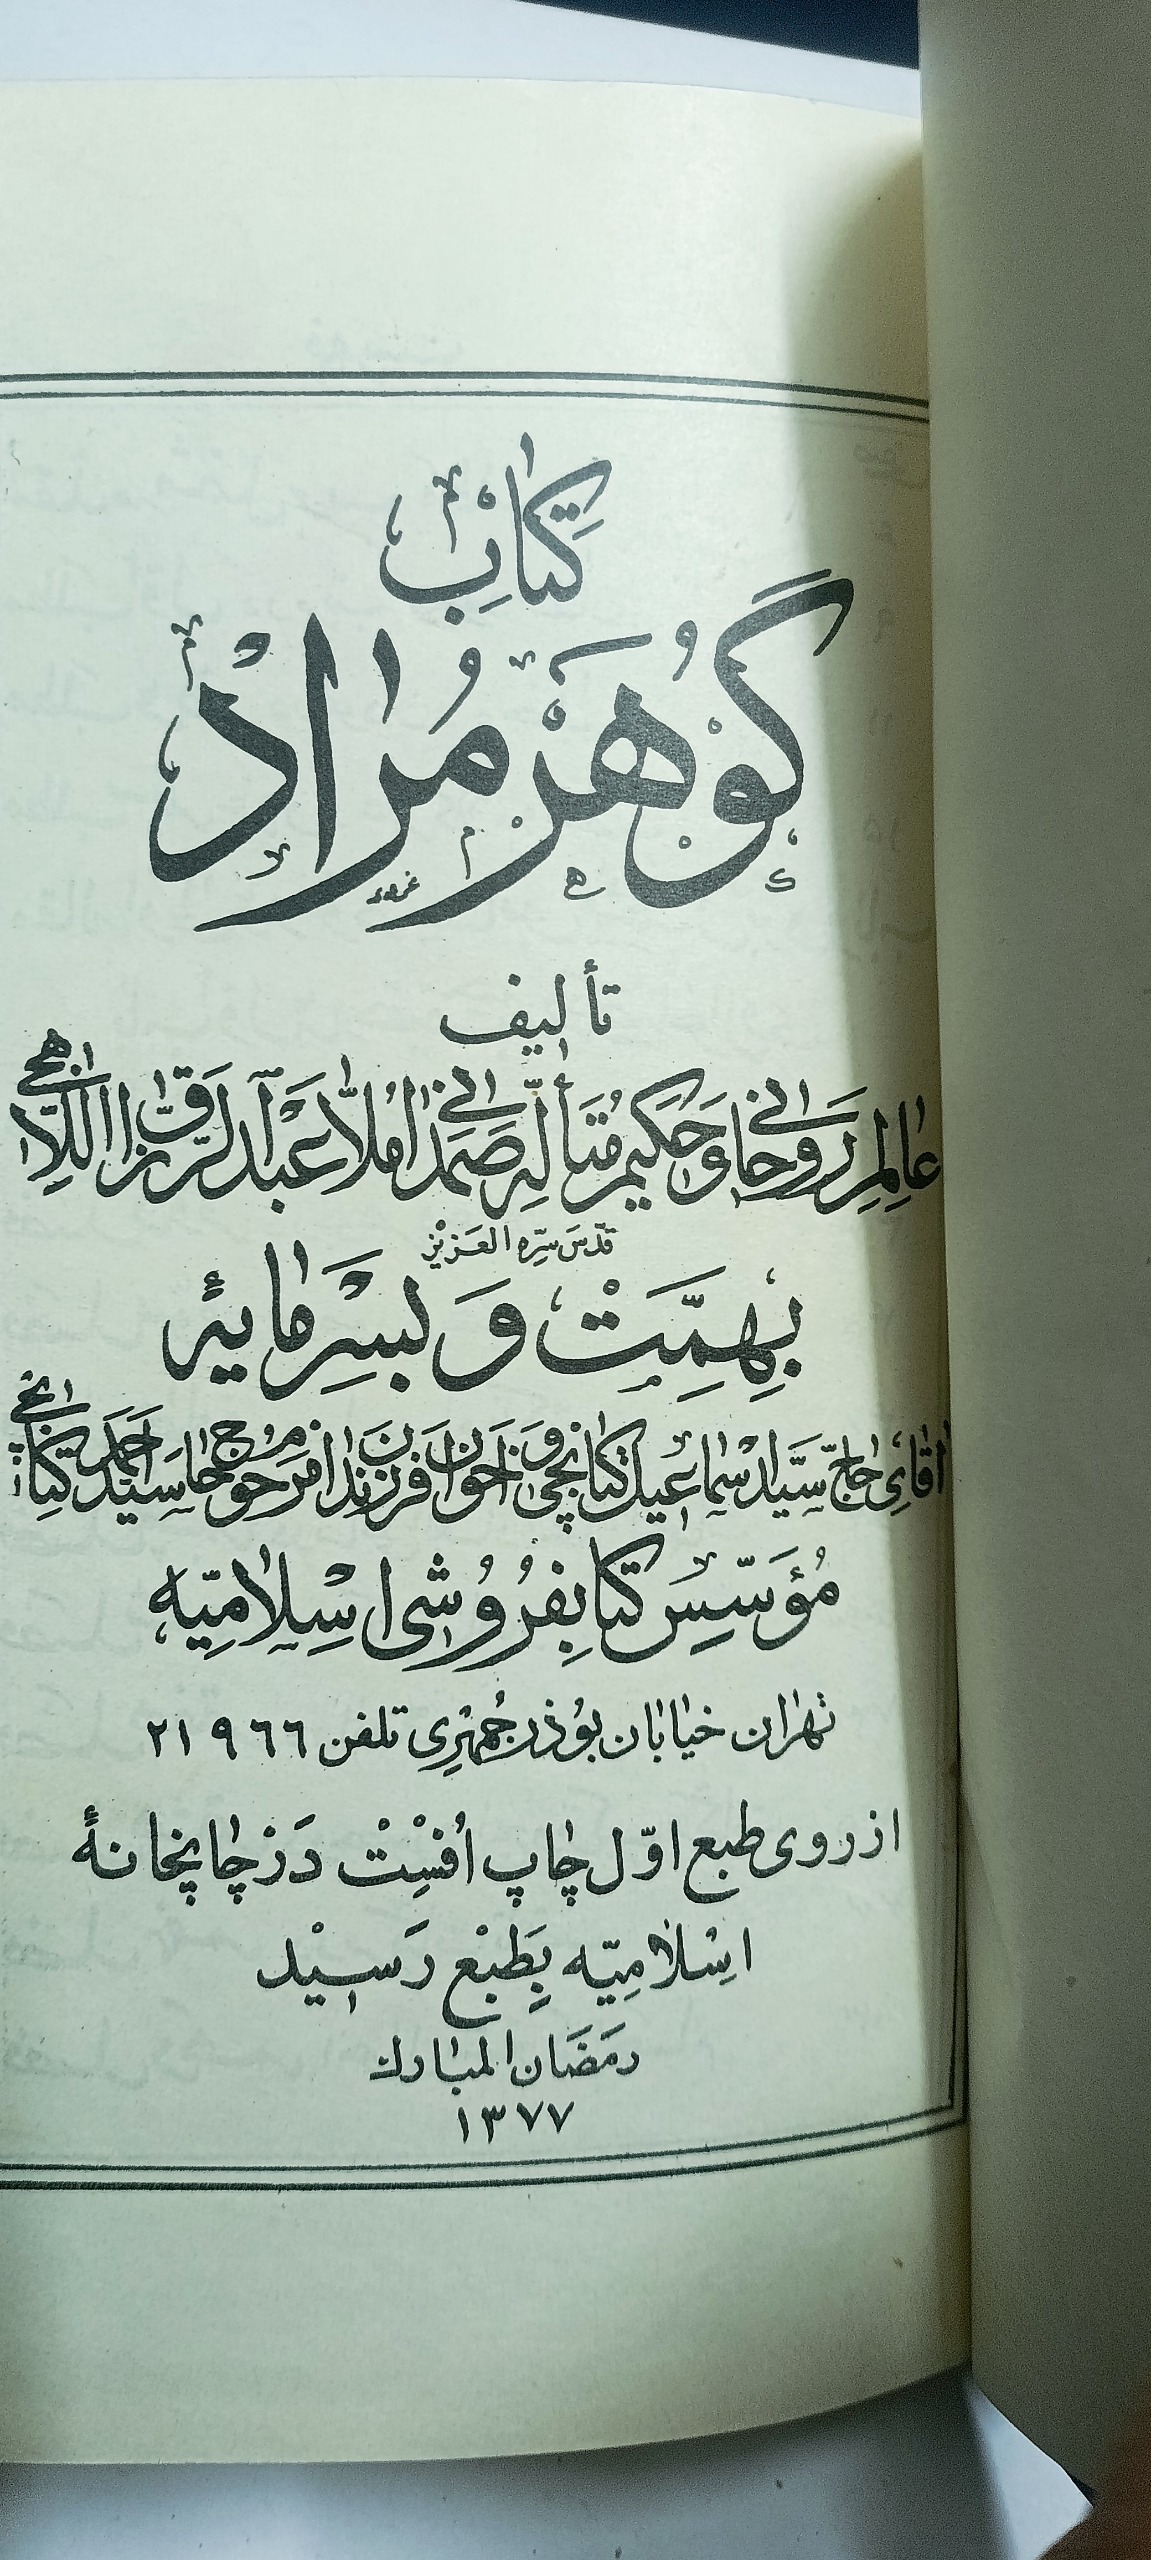 كتاب
گوهر مراد
تأليف
عالم روحانى و حكيم متأله صمدانى ملا عبد الرزاق اللاهجى
قدّس سرّه العزيز
بهمّت و بسرمايهٔ
آقاى حاج سيّد اسماعيل كتابچى و اخوان فرزندان مرحوم حاج سيد احمد كتابچى
مؤسّس كتابفروشى اسلاميّه
تهران خيابان بوذرجمهرى تلفن ۲۱۹۶۶
از روى طبع اوّل چاپ افست در چاپخانهٔ
اسلاميّه بطبع رسيد
رمضان المبارك
۱۳۷۷